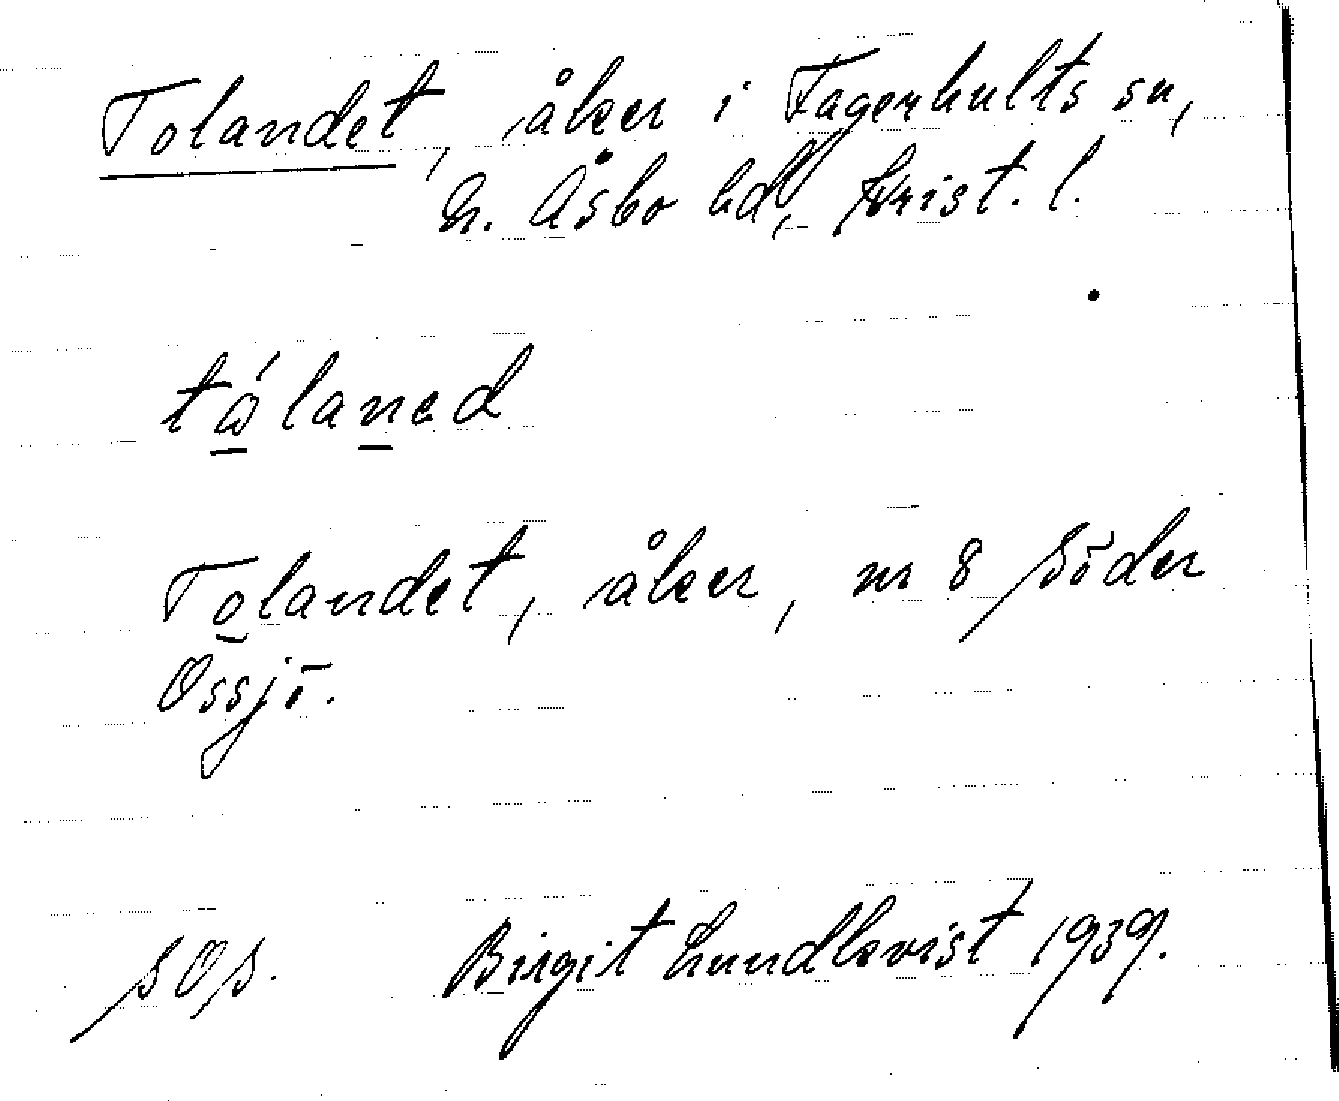 Tolandet, åker i Fagerhults sn,
N. Åsbo hd, Krist. l.
tólanad
Tolandet, åker, nr 8 Söder
Össjö.
SOS. Birgit Lundkvist 1939.